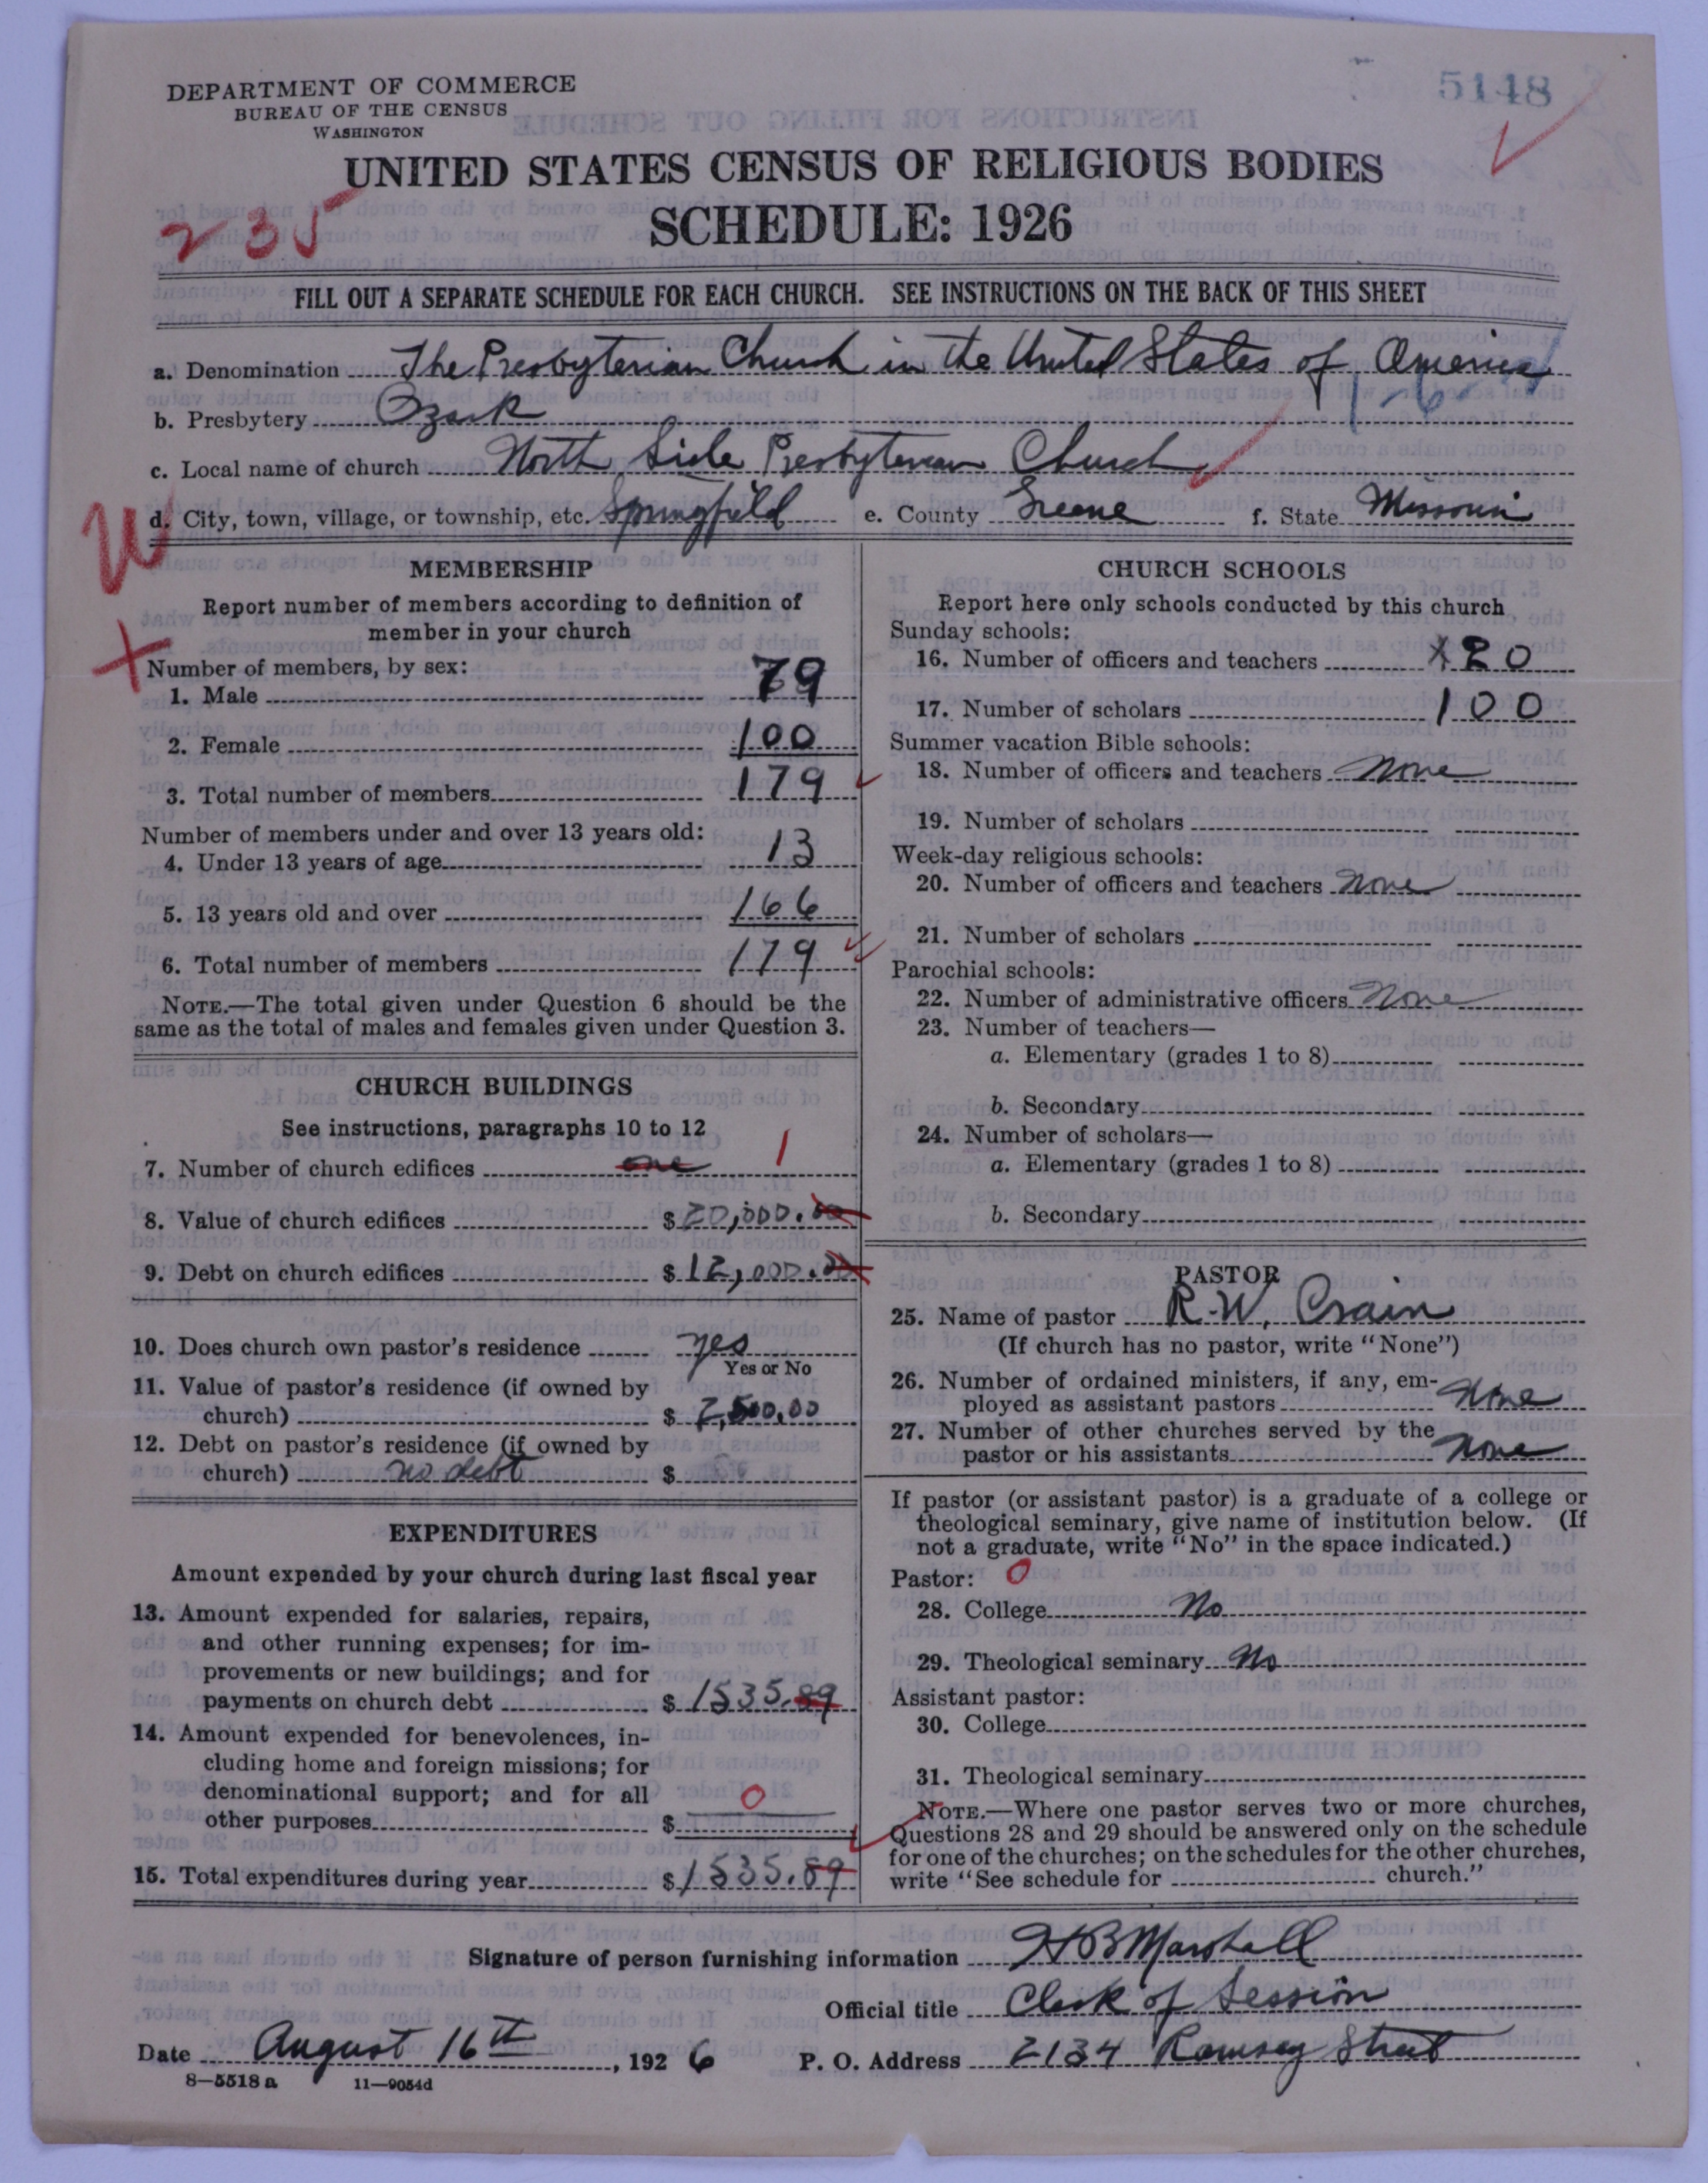 DEPARTMENT OF COMMERCE
BUREAU OF THE CENSUS
WASHINGTON
5148
UNITED STATES CENSUS OF RELIGIOUS BODIES
235
SCHEDULE: 1926
FILL OUT A SEPARATE SCHEDULE FOR EACH CHURCH. SEE INSTRUCTIONS ON THE BACK OF THIS SHEET
a. Denomination The Presbyterian Church in the United States of America
b. Presbytery Ozark
c. Local name of church North Side Presbyterian Church
d. City, town, village, or township, etc. Springfield e. County Greene f. State Missouri
W
MEMBERSHIP
Report number of members according to definition of
member in your church
Number of members, by sex:
1. Male 79
2. Female 100
3. Total number of members 179
Number of members under and over 13 years old:
4. Under 13 years of age 13
5. 13 years old and over 166
6. Total number of members 179
NOTE.—The total given under Question 6 should be the
same as the total of males and females given under Question 3.
CHURCH BUILDINGS
See instructions, paragraphs 10 to 12
7. Number of church edifices one 1
8. Value of church edifices $ 20,000.00
9. Debt on church edifices $ 12,000.00
10. Does church own pastor's residence yes
Yes or No
11. Value of pastor's residence (if owned by
church) $ 2,500.00
12. Debt on pastor's residence (if owned by
church) no debt $
EXPENDITURES
Amount expended by your church during last fiscal year
13. Amount expended for salaries, repairs,
and other running expenses; for im-
provements or new buildings; and for
payments on church debt $ 1535.89
14. Amount expended for benevolences, in-
cluding home and foreign missions; for
denominational support; and for all
other purposes $ 0
15. Total expenditures during year $ 1535.89
CHURCH SCHOOLS
Report here only schools conducted by this church
Sunday schools:
16. Number of officers and teachers 20
17. Number of scholars 100
Summer vacation Bible schools:
18. Number of officers and teachers None
19. Number of scholars
Week-day religious schools:
20. Number of officers and teachers None
21. Number of scholars
Parochial schools:
22. Number of administrative officers None
23. Number of teachers—
a. Elementary (grades 1 to 8)
b. Secondary
24. Number of scholars—
a. Elementary (grades 1 to 8)
b. Secondary
PASTOR
25. Name of pastor R. W. Crain
(If church has no pastor, write "None")
26. Number of ordained ministers, if any, em-
ployed as assistant pastors None
27. Number of other churches served by the
pastor or his assistants None
If pastor (or assistant pastor) is a graduate of a college or
theological seminary, give name of institution below. (If
not a graduate, write "No" in the space indicated.)
Pastor: 0
28. College No
29. Theological seminary No
Assistant pastor:
30. College
31. Theological seminary
NOTE.—Where one pastor serves two or more churches,
Questions 28 and 29 should be answered only on the schedule
for one of the churches; on the schedules for the other churches,
write "See schedule for church."
Signature of person furnishing information H B Marshall
Official title Clerk of Session
Date August 16th, 1926 P. O. Address 2134 Ramsey Street
8—5518 a 11—9054d